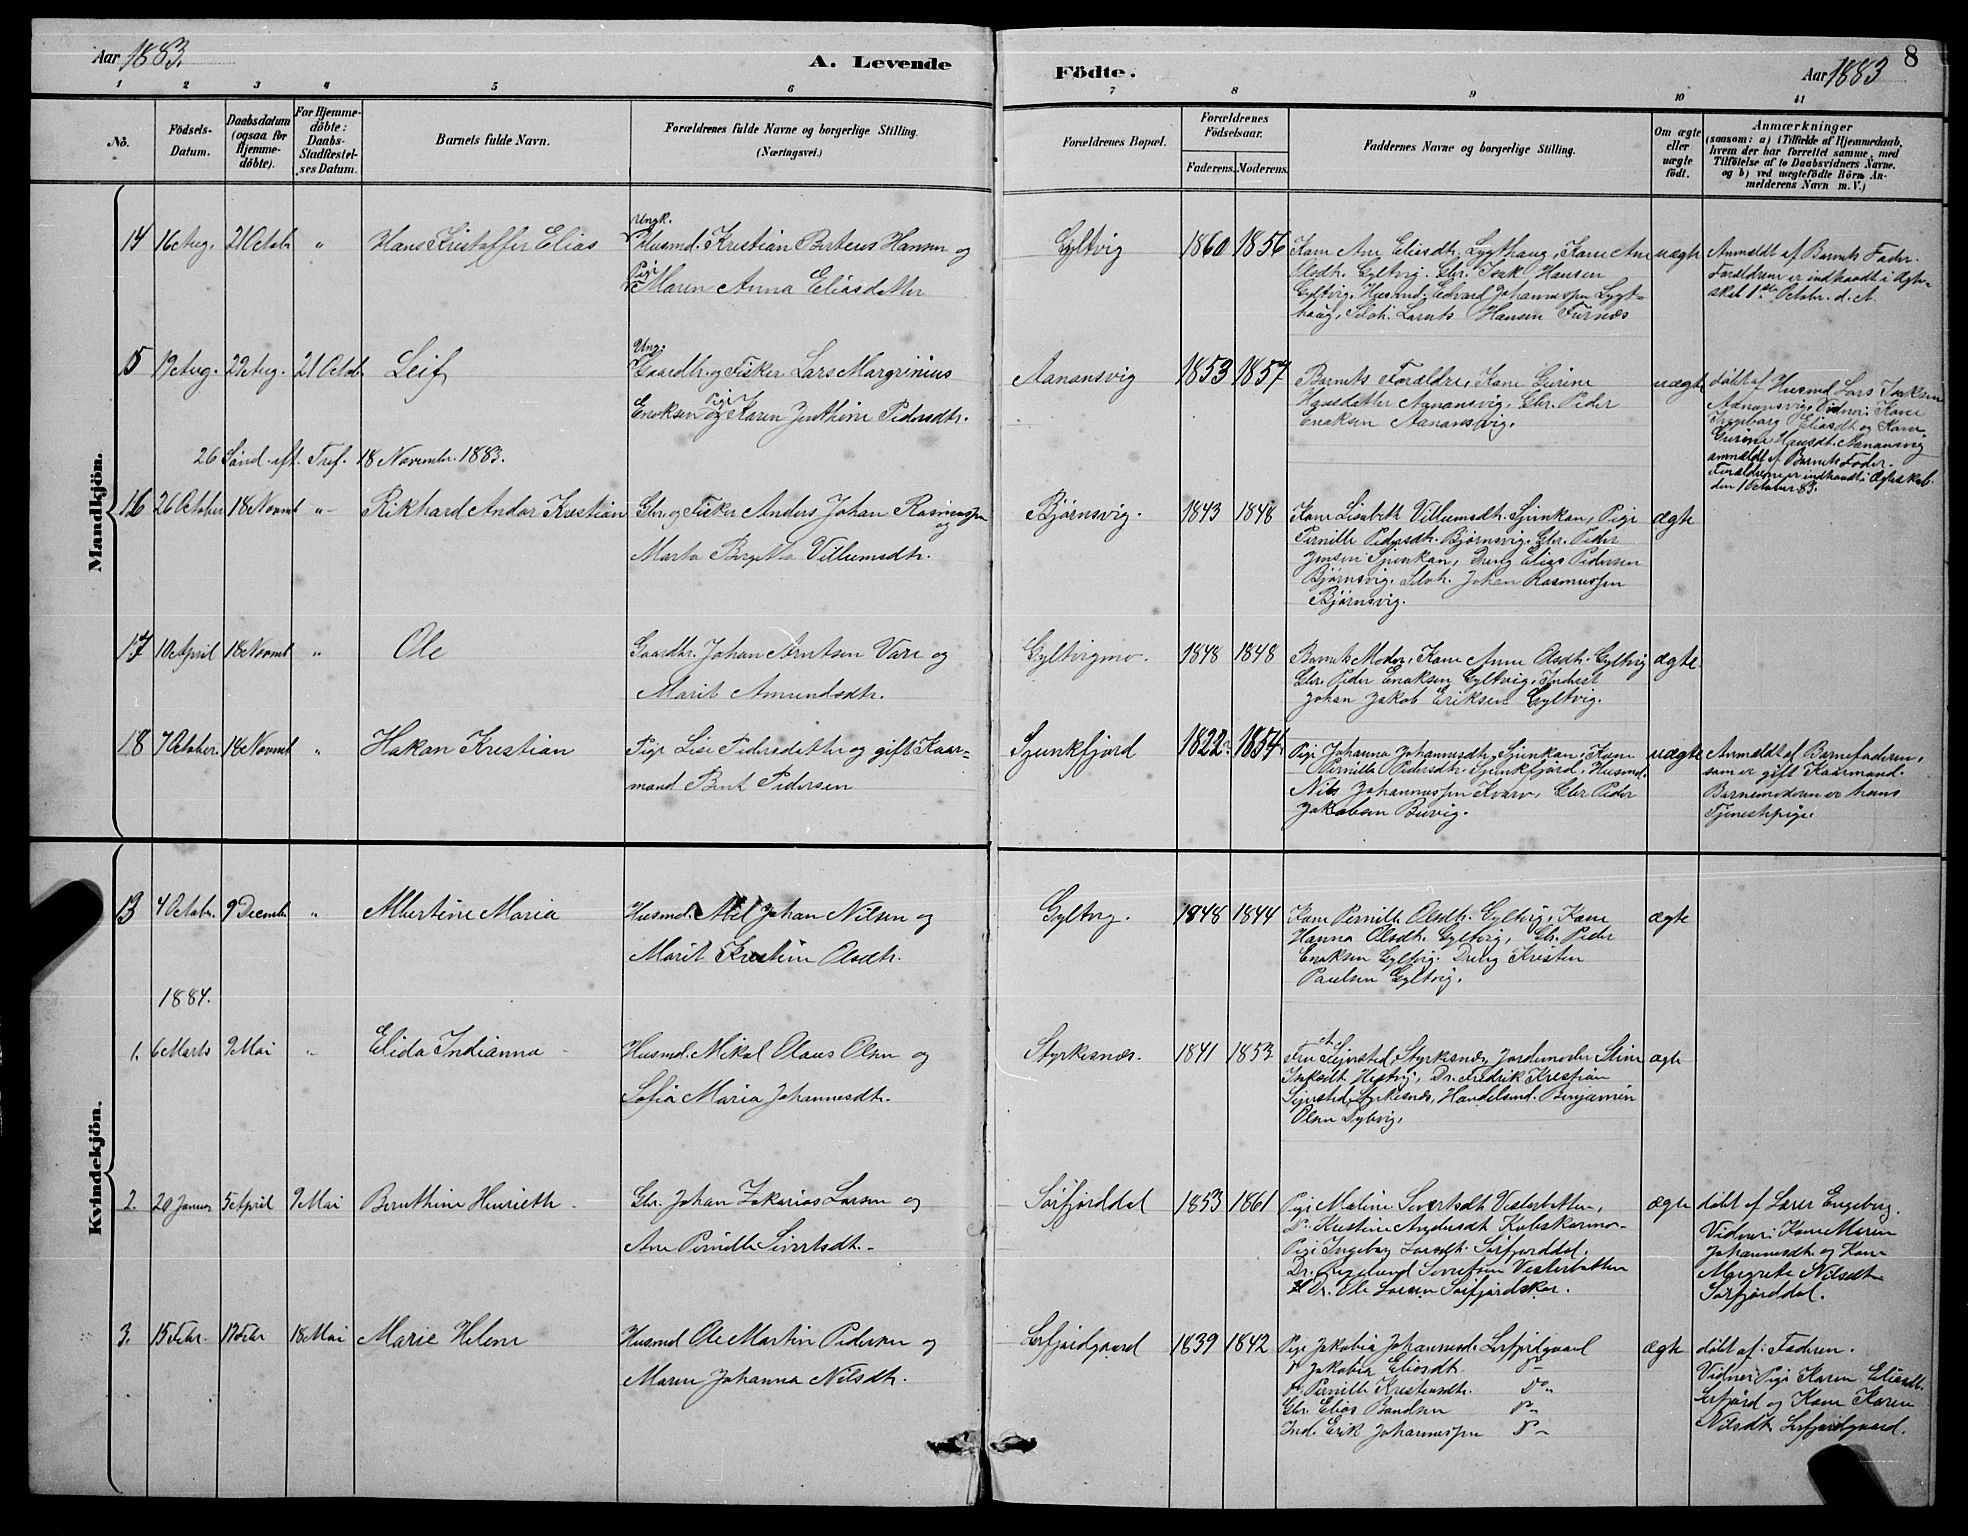 Aar 1883.
A. Levende Födte.
Aar 1883
8
1 2 3 4 5 6 7 8 9 10 11
No.
Födsels-Datum.
Daabsdatum (ogsaa for Hjemme-döbte).
For Hjemme-döbte: Daabs-Stadfæstel-ses Datum.
Barnets fulde Navn.
Forældrenes fulde Navne og borgerlige Stilling. (Næringsvei.)
Forældrenes Bopæl.
Forældrenes Födselsaar.
Faderens. Moderens.
Faddernes Navne og borgerlige Stilling.
Om ægte eller uægte födt.
Anmærkninger
(saasom: a) i Tilfælde af Hjemmedaab,
hvem der har forrettet samme, med
Tilföielse af to Daabsvidners Navne.
og b) ved uægtefödte Börn An-
melderens Navn m. V.)
Mandkjön.
14 16 Aug. 21 Octobr " Hans Kristoffer Elias
Ungk.
Husmd. Kristian Berteus Hansen og
Pige
Maren Anna Eliasdatter
Gyltvig 1860 1856
Kone Ane Eliasdtr. Lygthaug, Kone Ane
Olsdtr. Gyltvig. Gbr. Isak Hansen
Gyltvig, Husmd. Edvard Johannessen Lygt-
haug, Selvh. Lornts Hansen Furnæs
uægte
Anmeldt af Barnets Fader.
Forældrene er indtraadt i Ægte-
skab 1ste Octobr. d. A.
15 19 Aug. 29 Aug. 21 Octob. Leif
Ung.
Gaardbr. og Fisker Lars Margrinius
Enoksen og Pige Karen Jenthine Pedersdtr.
Aanansvig 1853 1857
Barnets Forældre, Kone Gurine
Hansdatter Aanansvig, Gbr. Peder
Enoksen Aanansvig.
uægte
döbt af Husmd Lars Isaksen
Aanansvig, Vidner: Kone
Ingeborg Eliasdt og Kone
Gurine Hansdt. Aanansvig
anmeldt af Barnets Fader.
Forældrene er indtraadt i Ægteskab
den 1 October 83.
26 Sönd. eft. Tref. 18 Novembr. 1883.
16 26 October 18 Novmb " Rikhard Andor Krestian
Gbr. og Fisker Anders Johan Rasmussen
og
Marta Bergitta Villumsdtr.
Bjørnsvig. 1843 1848
Kone Lisabeth Villumsdtr. Sjunkan, Pige
Pernille Pedersdtr. Bjørnsvig. Gbr. Peder
Jensen Sjunkan, Dreng Elias Pedersen
Bjørnsvig. Selvh. Johan Rasmussen
Bjørnsvig.
ægte
17 10 April 18 Novmb " Ole
Gaardbr. Johan Arntsen Vare og
Marit Amundsdtr.
Gyltvigmo. 1848 1848
Barnets Moder, Kone Anne Olsdtr. Gyltvig
Gbr. Peder Enoksen Gyltvig, Inderst
Johan Jakob Eriksen Gyltvig.
ægte
18 7 October. 18 Novmb " Hakan Krestian
Pige Lise Pedersdatter og gift Kaar-
mand Bent Pedersen
Sjunkfjord 1822. 1854.
Pige Johanna Johannesdtr. Sjunkan, Kone
Pernille Pedersdtr. Sjunkfjord, Husmd.
Nils Johannessen Kvarv, Gbr. Peder
Jakobsen Buvig.
uægte
Anmeldt af Barnefaderen,
som er gift Kaarmand.
Barnemoderen er hans
Tjenestepige.
Kvindekjön.
13 4 Octobr. 9 Decembr " Albertine Maria
Husmd. Abel Johan Nilsen og
Marit Krestine Olsdtr.
Gyltvig. 1848 1844
Kone Pernille Olsdtr. Gyltvig, Kone
Hanna Olsdtr. Gyltvig, Gbr. Peder
Enoksen Gyltvig. Dreng Kristen
Paulsen Gyltvig.
ægte
1884.
1. 6 Marts 9 Mai " Elida Indianna
Husmd. Mikal Olaus Olsen og
Sofia Maria Johannesdtr.
Styrkesnæs. 1841 1853
Fru Sejersted, Styrkesnæs, Jordemoder Stine
Isaksdt Hestvig, Dr. Fredrik Krestian
Sejersted, Styrkesnæs, Handelsmd. Benjamin
Olsen Dybvig.
ægte
2. 20 Januar 5 April 9 Mai Bernthine Henriette
Gbr. Johan Zakarias Larsen og
Ane Pernille Sivertsdt.
Sörfjorddal 1853 1861
Pige Maline Sivertsdt Vesterbotten,
Do. Kristine Andersdt Kobskarmo
Pige Ingeborg Larsdt. Sörfjorddal.
Dr. Sivertsen Vesterbotten
Dr. Ole Larsen Sörfjordskar.
ægte
döbt af Lærer Engeberg.
Vidner: Kone Maren
Johannesdt og Kone
Margrete Nilsdt
Sörfjorddal.
3. 15 Febr. 17 Febr 18 Mai Marie Helene
Husmd Ole Martin Pedersen og
Maren Johanna Nilsdtr.
Lerfjordgaard 1839 1842
Pige Jakobia Johannesd. Lerfjordgaard
Do Jakobia Eliasdt. Do
Do Pernille Kristensdtr. Do
Gbr. Elias Bendsen Do
Ind. Erik Johannessen Do
ægte
döbt af: Faderen.
Vidner: Pige Karen Eliasdt.
Lerfjord og Kone Karen
Nilsdt. Lerfjordgaard.